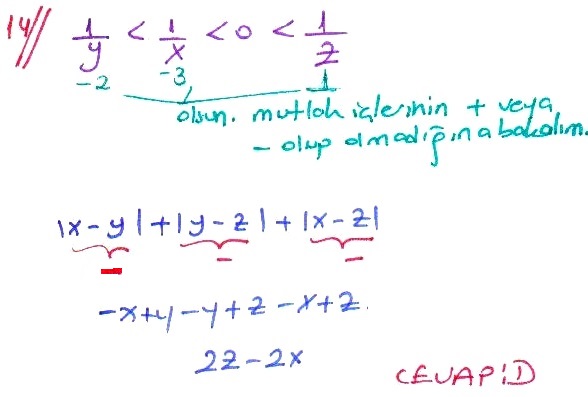 14// 1/y < 1/x < 0 < 1/z
-2 -3 1
olsun. mutlak içlerinin + veya
- olup olmadığına bakalım.
|x-y|+|y-z|+|x-z|
- - -
-x+y-y+z-x+z.
2z-2x
CEVAP:D